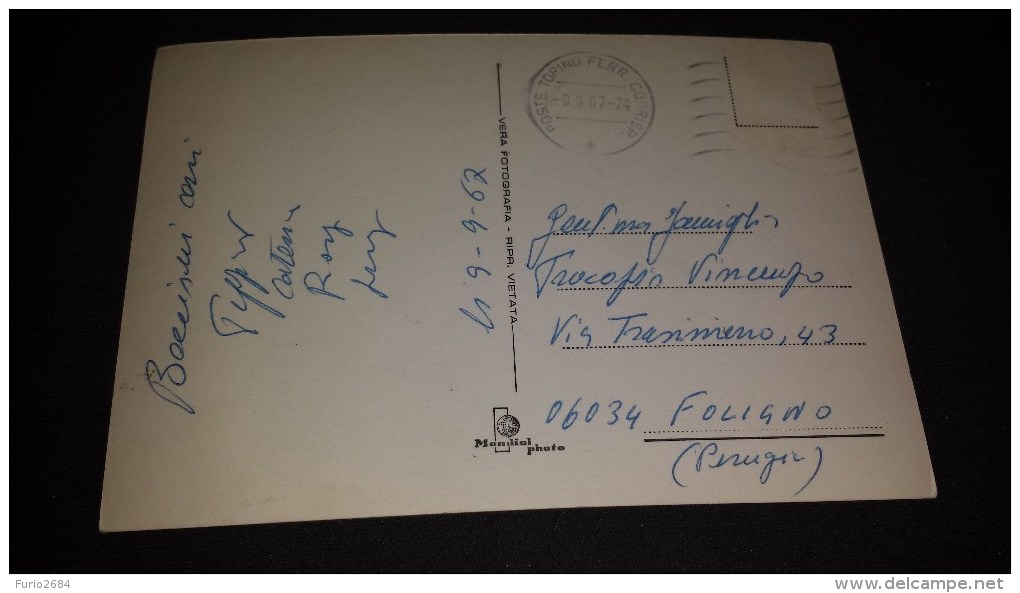 Bacissimi cari
Peppino
Caterina
Rosy
lì 9-9-67
VERA FOTOGRAFIA - RIPR. VIETATA
POSTE TORINO FERR. CORRISP.
-9.9.67-24
Gent.ma Famiglia
Vincenzo
Via Trasimeno, 43
06034 FOLIGNO
(Perugia)
Mondial
photo
Furio2684
www.delcampe.net